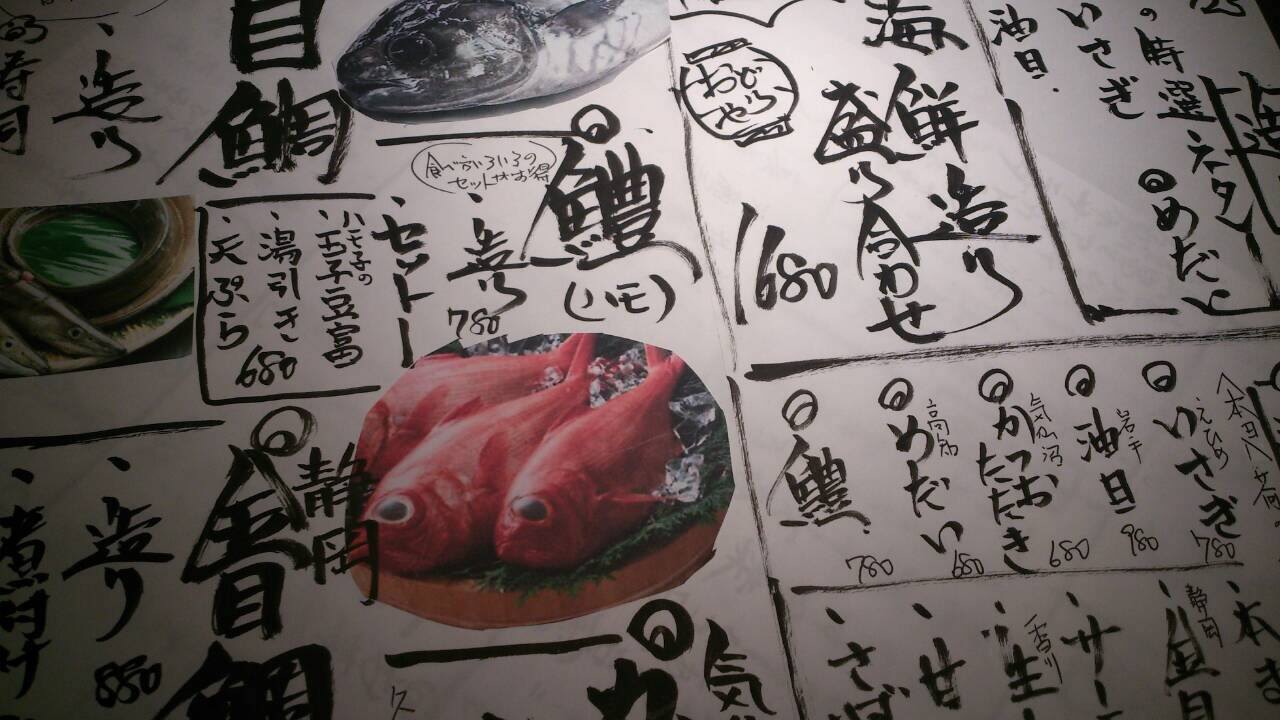 の時選ネタ
めだい
いさぎ
油目
海鮮造り
盛り合わせ
1680
おび
鱧
(ハモ)
食べ方いろいろの
セットがお得
造り
780
セット
ハモ子の
玉子豆富
湯引き
天ぷら
680
目鯛
造り
えひめ
いさぎ
780
岩手
油目
980
気仙沼
かつお
たたき
680
高知
めだい
680
鱧
780
静岡
金目鯛
造り
880
煮付け
気
カ
本ま
静岡
金目
サー
香川
生
甘
さば